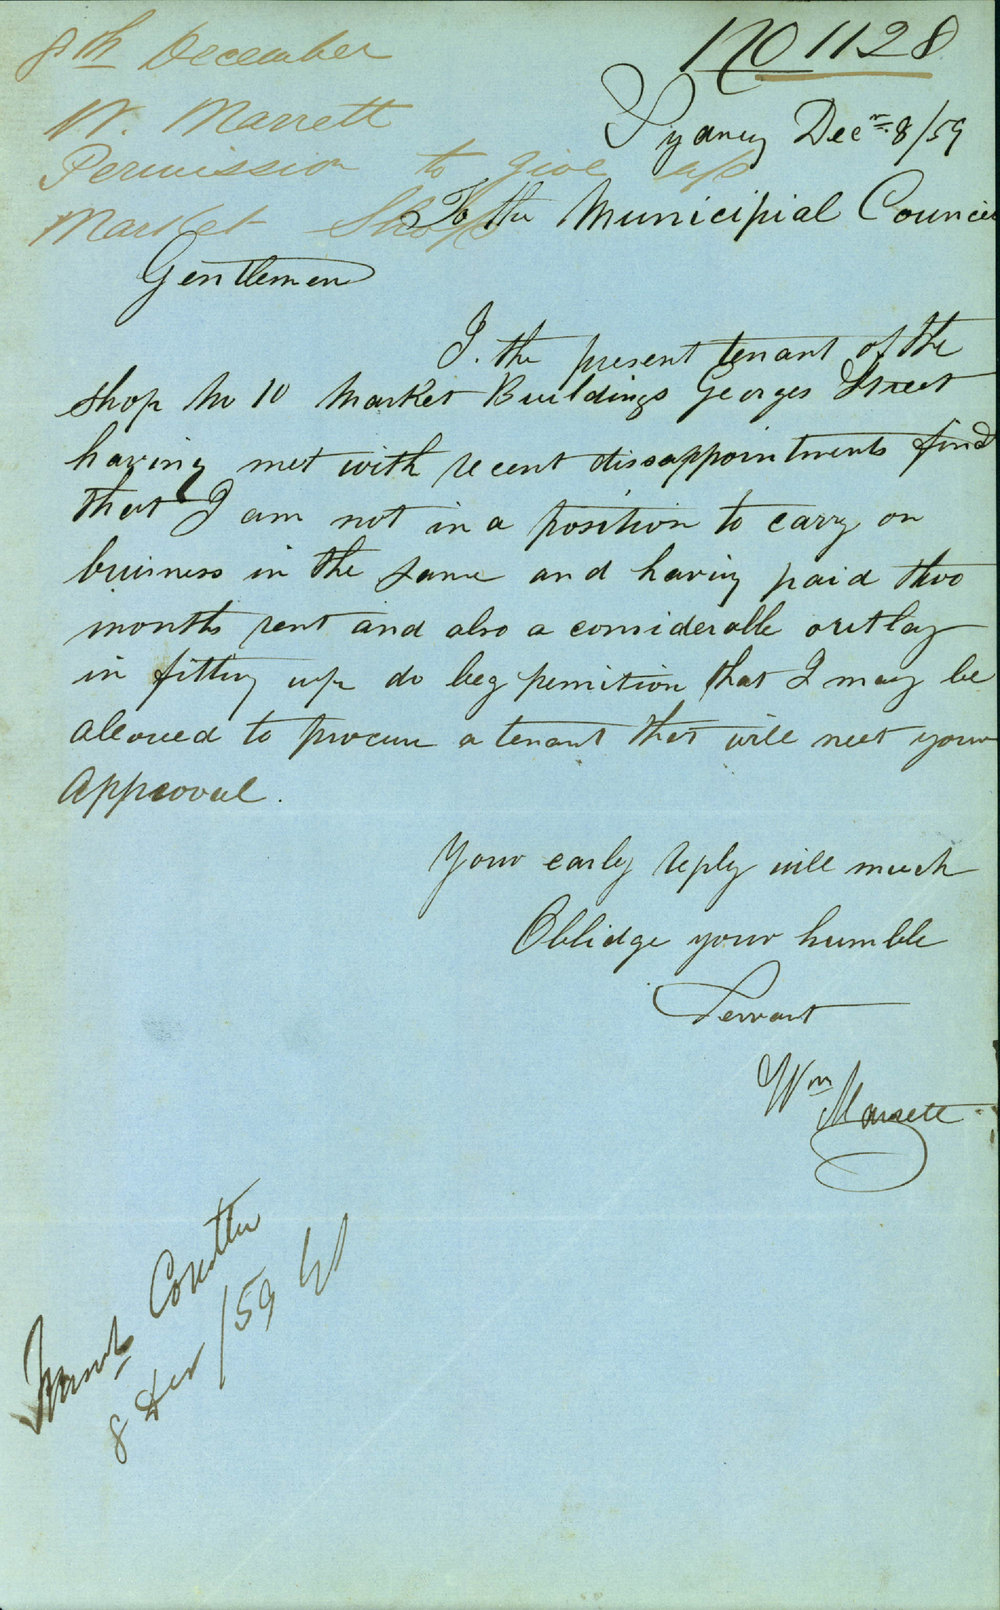 No 1128
8th December
W. Marrett
Permission to give up
Market Shops
Sydney Decr. 8/59
To the Municipial Council
Gentlemen
I. the present tenant of the
shop No 10 Market Buildings Georges Street
having met with recent dissappointments find
that I am not in a position to carry on
buisness in the same and having paid two
months rent and also a considerable outlay
in fitting up do beg permition that I may be
alowed to procure a tenant that will meet your
Approval.
Your early reply will much
Oblidge your humble
Servant
Wm Marrett
Comttee
8 Decr /59